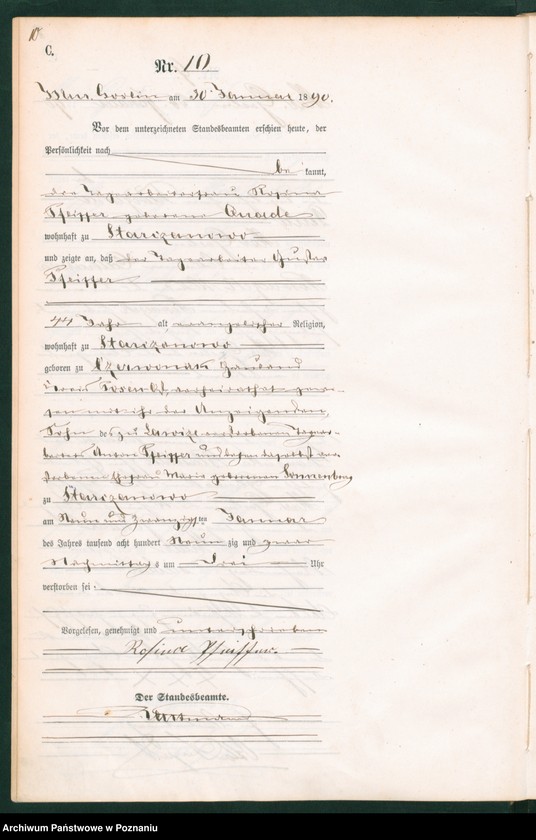 10.
C.
Nr. 10
Mur. Goslin am 30 Januar 1890.
Vor dem unterzeichneten Standesbeamten erschien heute, der
Persönlichkeit nach
be kannt,
die Tagearbeiterfrau Rosina
Pfeiffer geborene Quade
wohnhaft zu Starczanowo
und zeigte an, daß der Tagearbeiter Gustav
Pfeiffer
44 Jahr alt, evangelischer Religion,
wohnhaft zu Starczanowo
geboren zu Czerwonak
Kreis Posen verheirathet gewe-
sen mit ihr der Anzeigenden,
Sohn des zu verstorbenen Tagear-
beiters Anton Pfeiffer und daselbst ver-
storbenen Ehefrau Marie geborenen Sonnenberg
zu Starczanowo
am Neun und zwanzigsten Januar
des Jahres tausend acht hundert Neun zig und zwar
Nachmittags um Drei Uhr
verstorben sei.
Vorgelesen, genehmigt und unterschrieben
Rosine Pfeiffer.
Der Standesbeamte.
Archiwum Państwowe w Poznaniu